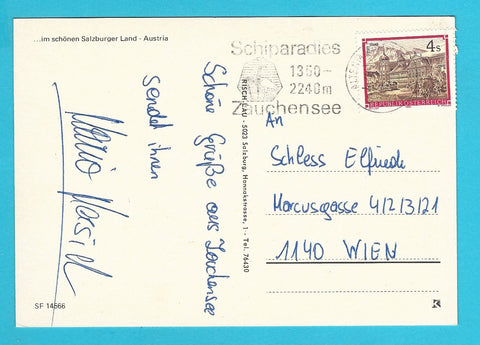 ...im schönen Salzburger Land - Austria
Schiparadies
1350-
2240m
Zauchensee
4 S
REPUBLIK ÖSTERREICH
Schöne Grüße aus Zauchensee
sendet ihnen
RISCH-LAU - 5023 Salzburg, Hannakstrasse, 1 - Tel. 76430
An
Schless Elfriede
Marcusgasse 4/2/3/21
1140 WIEN
SF 14666
K